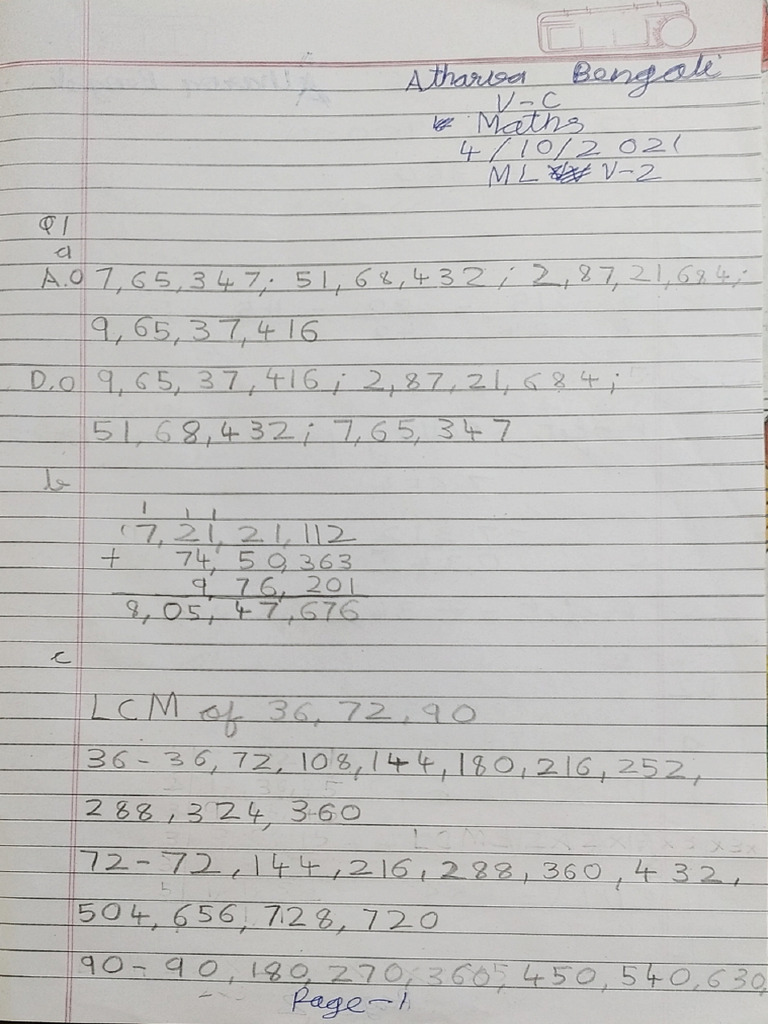 Atharva Bengali
V-C
Maths
4/10/2021
ML V-2
Q1
a
A.O 7,65,347; 51,68,432; 2,87,21,684;
9,65,37,416
D.O 9,65,37,416; 2,87,21,684;
51,68,432; 7,65,347
b
1 1 1
7,21,21,112
+ 74,50,363
9,76,201
8,05,47,676
c
LCM of 36,72,90
36-36,72,108,144,180,216,252,
288,324,360
72-72,144,216,288,360,432,
504,656,728,720
90-90,180,270,360,450,540,630,
Page-1